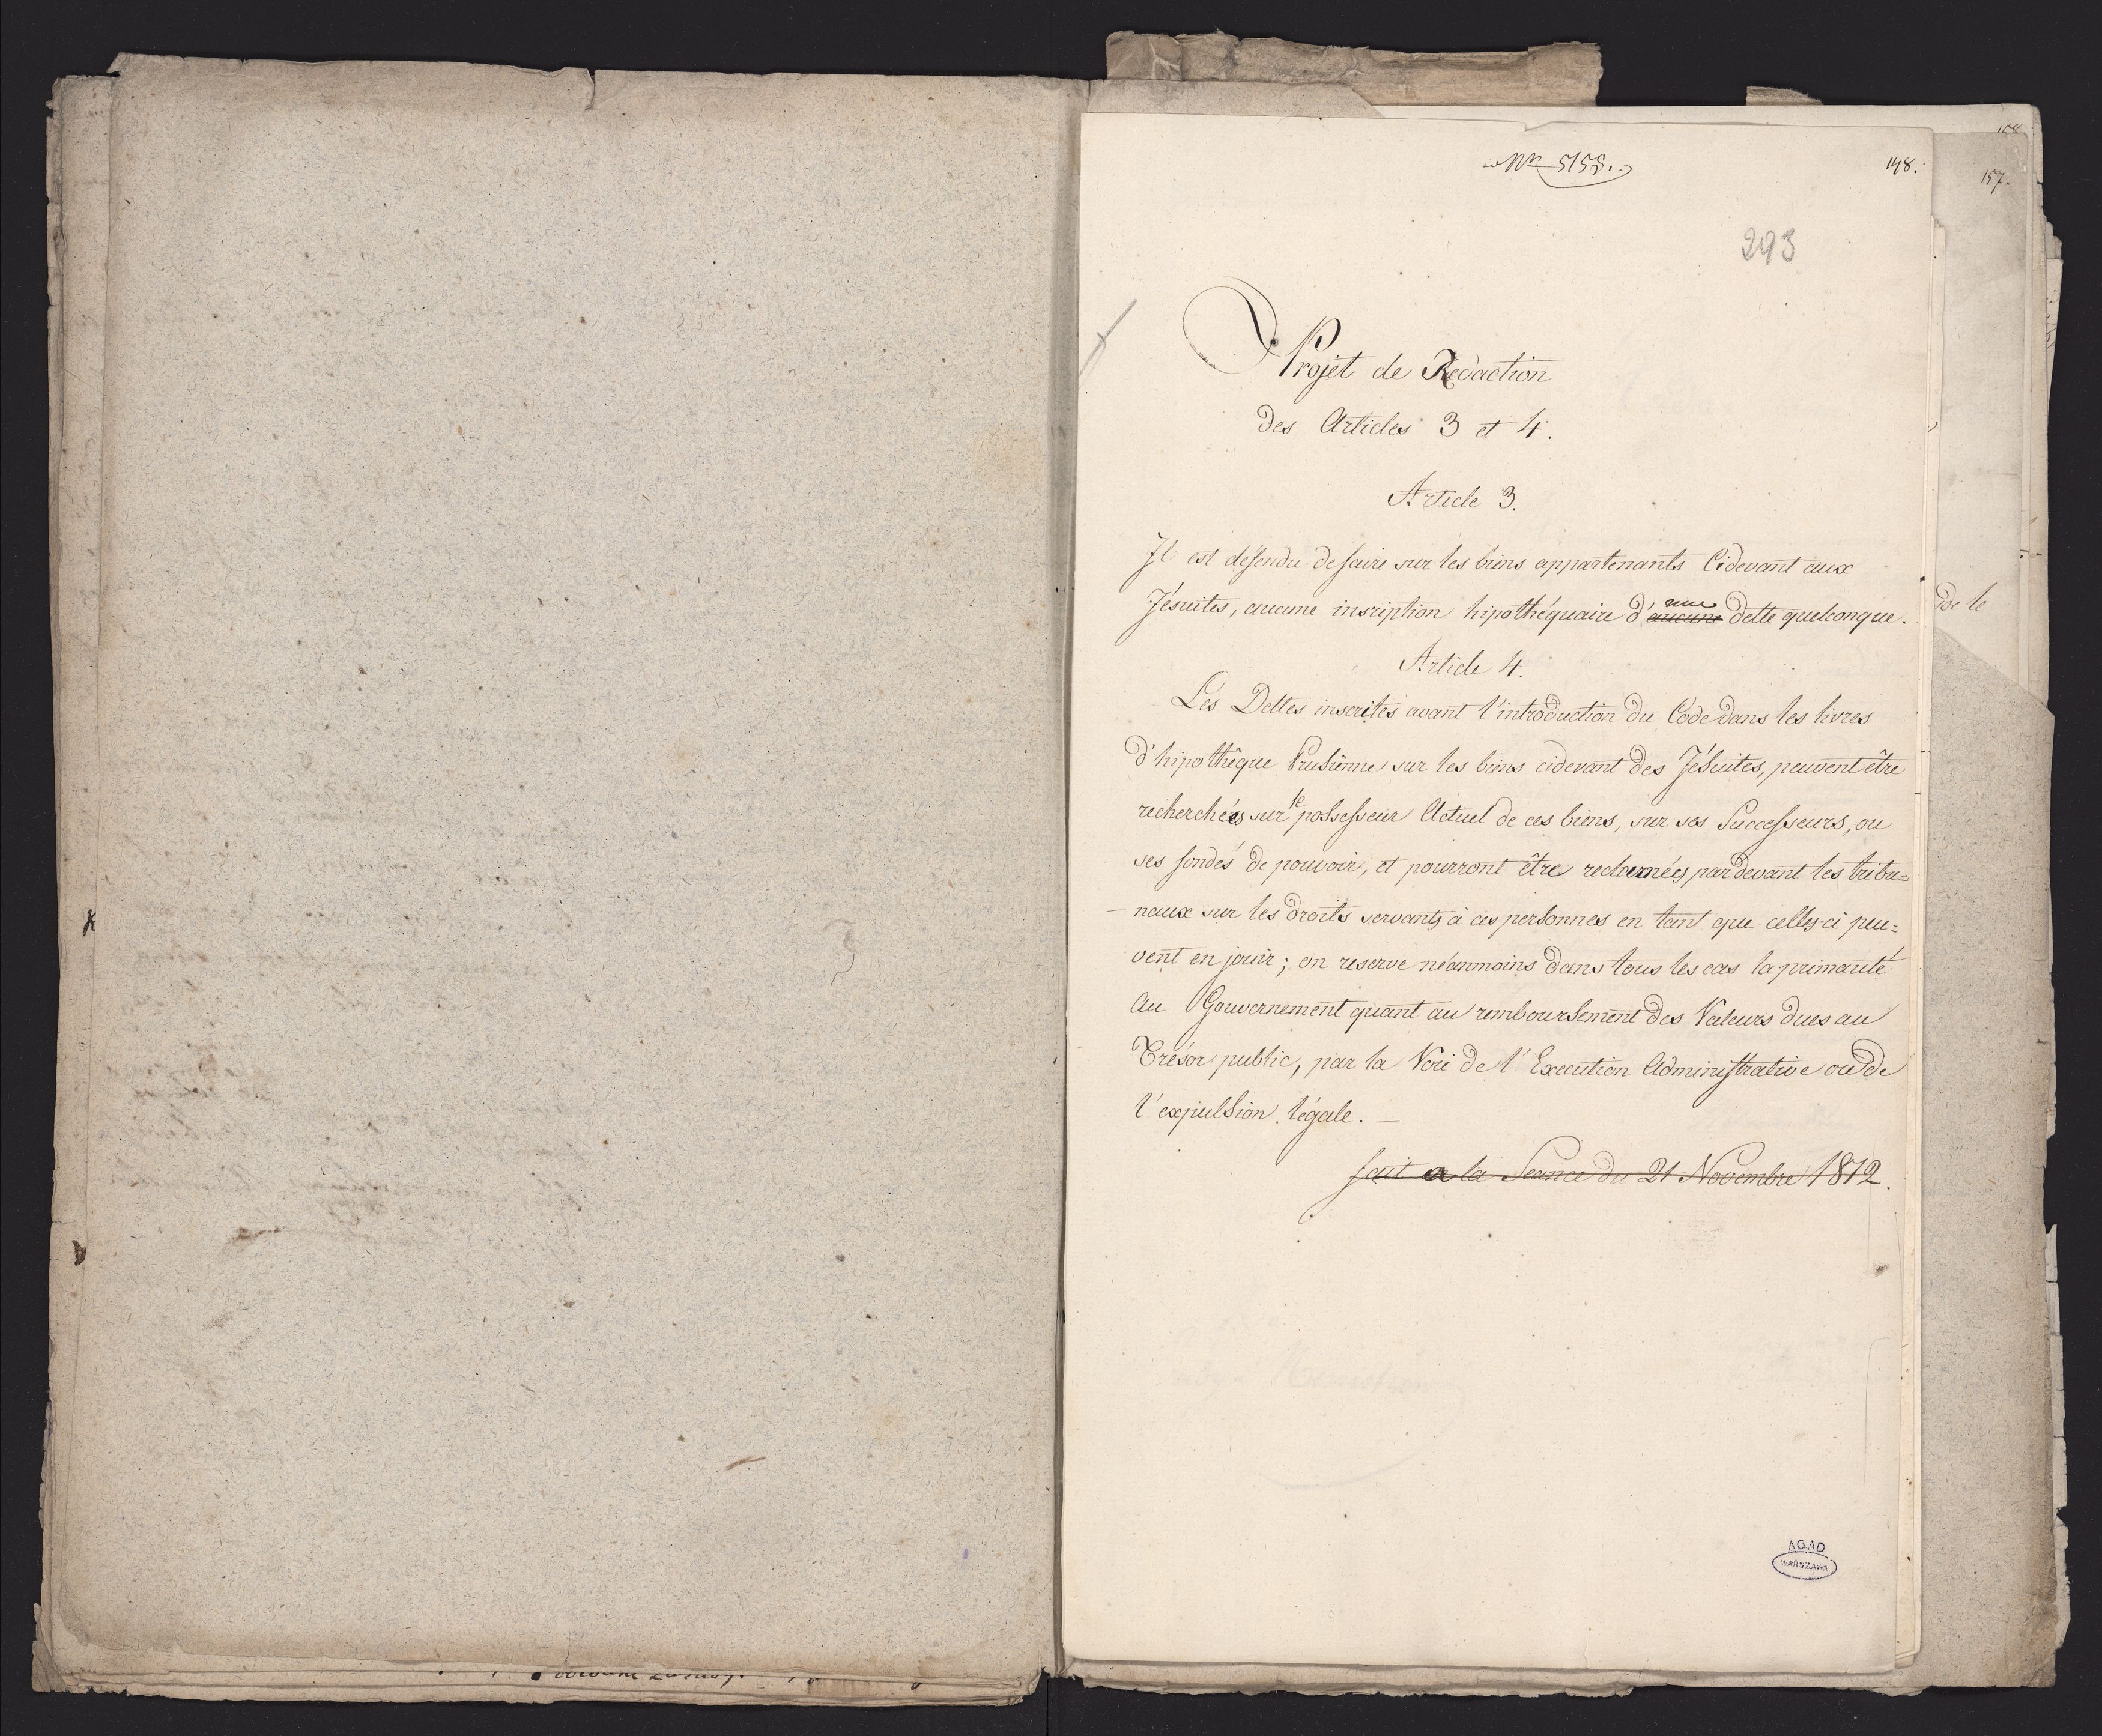 Nr 5155.
148.
157.
293
Projet de Redaction
des Articles 3 et 4.
Article 3.
Il est défendu de faire sur les biens appartenants Cidevant aux
Jésuites, aucune inscription hipothéquaire d'aucune une dette quelconque.
de le
Article 4.
Les Dettes inscrites avant l'introduction du Code dans les livres
d'hipothêque Prusienne sur les biens cidevant des Jésuites, peuvent être
recherchées sur le possesseur Actuel de ces biens, sur ses Successeurs, ou
ses fondés de pouvoir, et pourront être reclamées pardevant les tribu=
naux sur les droits servants à ces personnes en tant que celles-ci peu=
vent en jouir; on reserve néanmoins dans tous les cas la primauté
au Gouvernement quant au remboursement des Valeurs dues au
Trésor public, par la Voie de l'Execution Administrative ou de
l'expulsion légale. —
fait a la Seance du 21 Novembre 1812.
AGAD
WARSZAWA